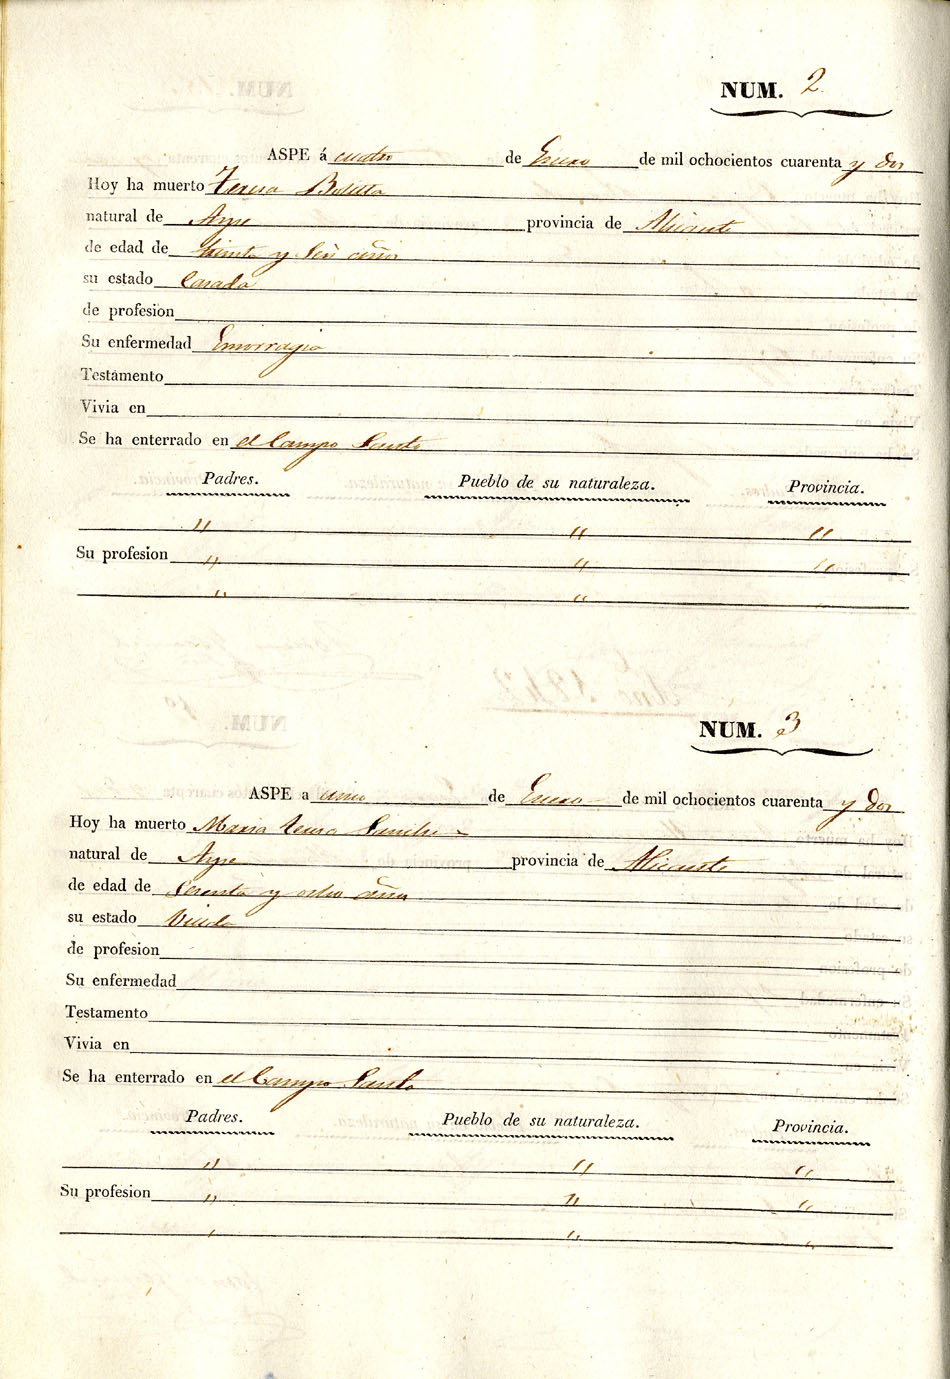 NUM. 2
ASPE á cuatro de Enero de mil ochocientos cuarenta y dos
Hoy ha muerto Teresa
natural de Aspe provincia de Alicante
de edad de treinta y seis años
su estado Casada
de profesion
Su enfermedad Emorragia
Testamento
Vivia en
Se ha enterrado en el Campo Santo
Padres. Pueblo de su naturaleza. Provincia.
" " "
Su profesion " " "
" " "
NUM. 3
ASPE a cinco de Enero de mil ochocientos cuarenta y dos
Hoy ha muerto Maria Teresa Sanchis
natural de Aspe provincia de Alicante
de edad de Sesenta y ocho años
su estado Viuda
de profesion
Su enfermedad
Testamento
Vivia en
Se ha enterrado en el Campo Santo
Padres. Pueblo de su naturaleza. Provincia.
" " "
Su profesion " " "
" " "